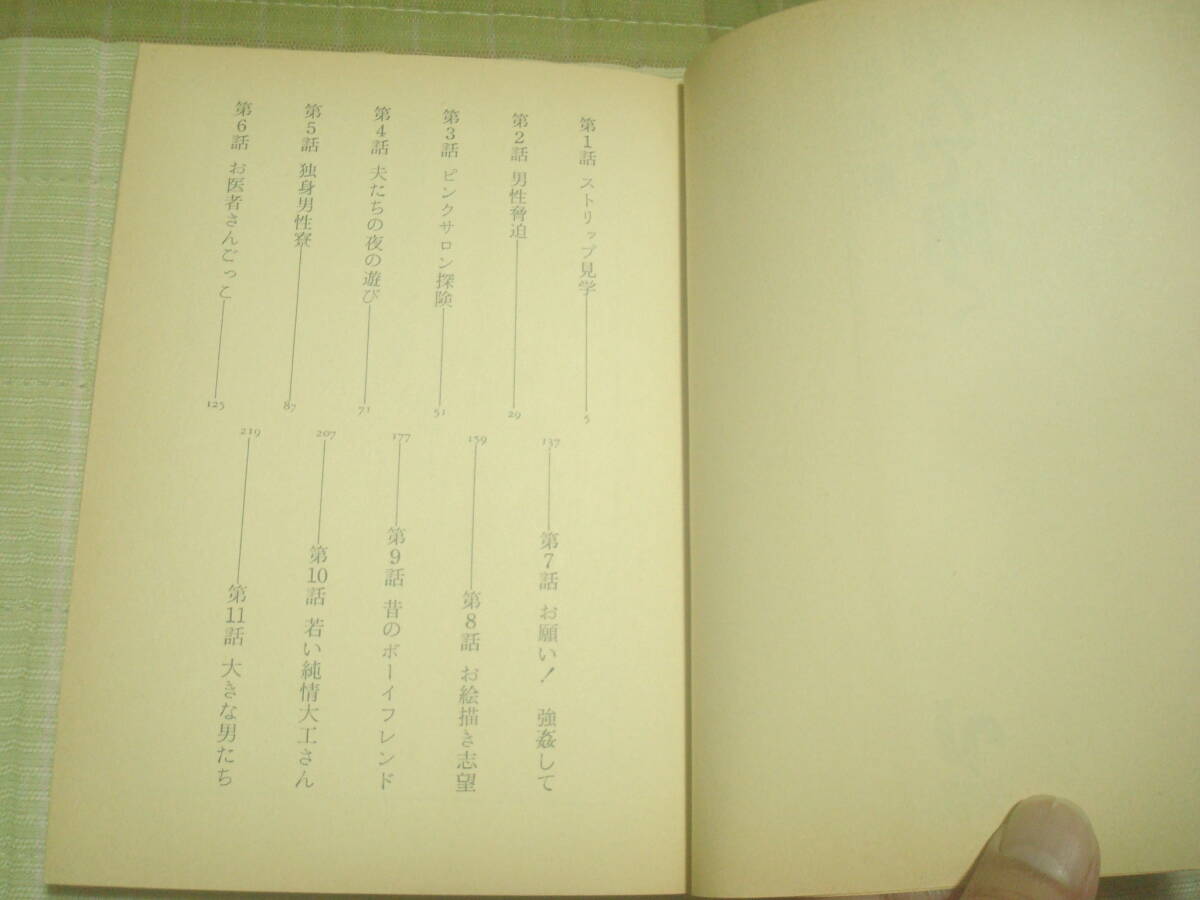 第1話 ストリップ見学 5
第2話 男性脅迫 29
第3話 ピンクサロン探険 51
第4話 夫たちの夜の遊び 71
第5話 独身男性寮 87
第6話 お医者さんごっこ 125
137 第7話 お願い! 強姦して
159 第8話 お絵描き志望
177 第9話 昔のボーイフレンド
207 第10話 若い純情大工さん
219 第11話 大きな男たち